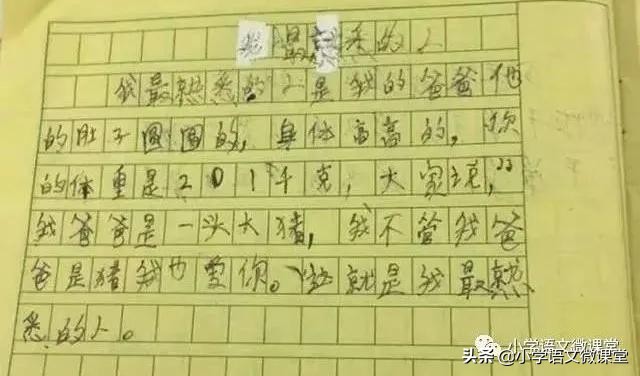 我最熟悉的人
我最熟悉的人是我的爸爸他
的肚子圆圆的，身体高高的，你
的体重是201千克，大
我爸爸是一头大猪，我不管我爸
爸是猪我也爱你。这就是我最熟
悉的人。
小学语文微课堂
头条@小学语文微课堂